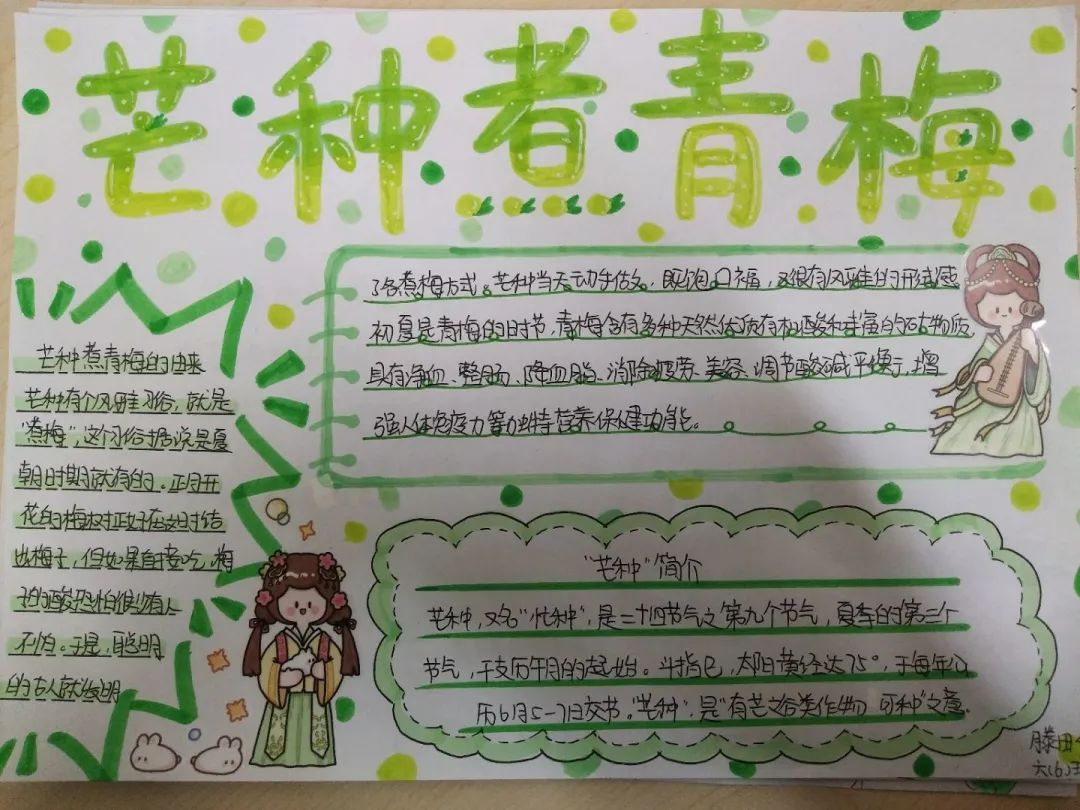 芒种煮青梅
芒种煮青梅的由来
芒种有个风雅习俗，就是
"煮梅"，这个习俗据说是夏
朝时期就有的。正月开
花的梅树正好在这时结
出梅子，但如果直接吃，梅
子的酸恐怕很少有人
不怕。于是，聪明
的古人就发明
了各煮梅方式。芒种当天动手估久，既饱口福，又很有风雅的形式感
初夏是青梅的时节，青梅含有多种天然优质有机酸和丰富的矿物质
具有净血、整肠、降血脂、消除疲劳、美容、调节酸碱平衡，增
强人体免疫力等独特营养保健功能。
"芒种"简介
芒种，又名"忙种"，是二十四节气之第九个节气，夏季的第三个
节气，干支历午月的起始。斗指巳，太阳黄经达75°，于每年公
历6月5-7日交节。"芒种"，是"有芒之谷类作物 可种"之意。
滕田
六(6)